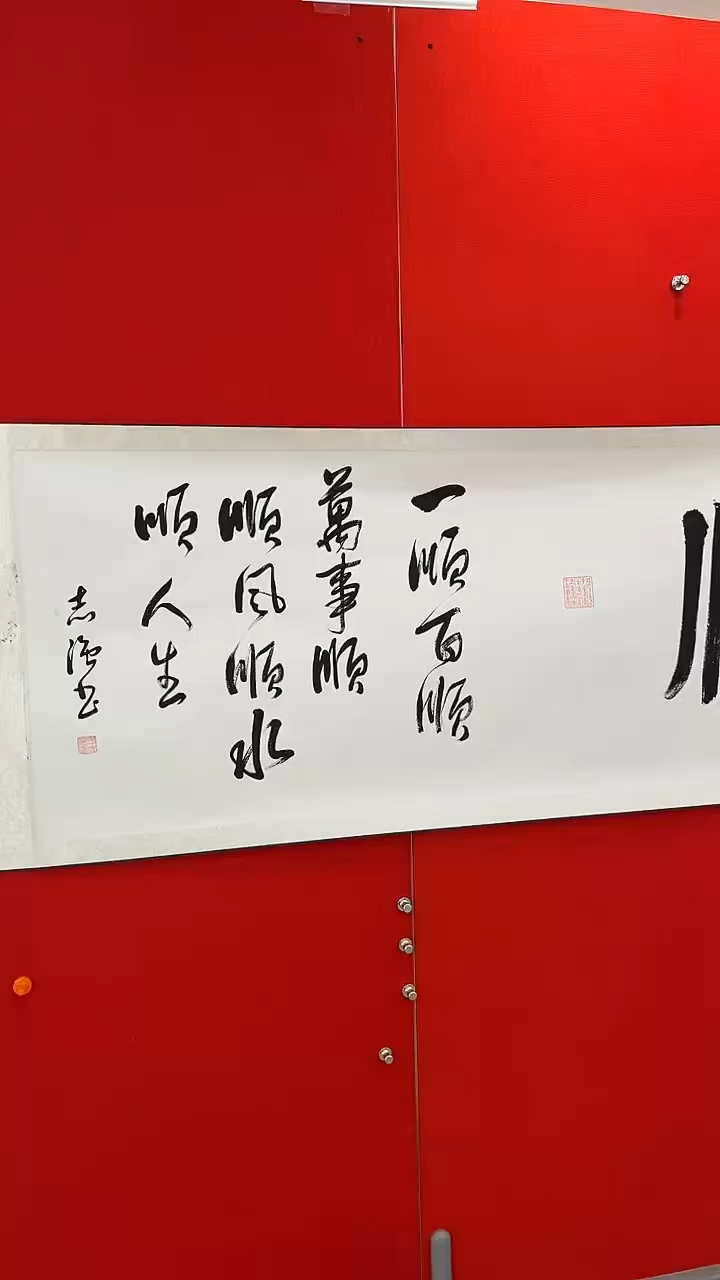 一順百順
萬事順
順風順水
順人生
志强书